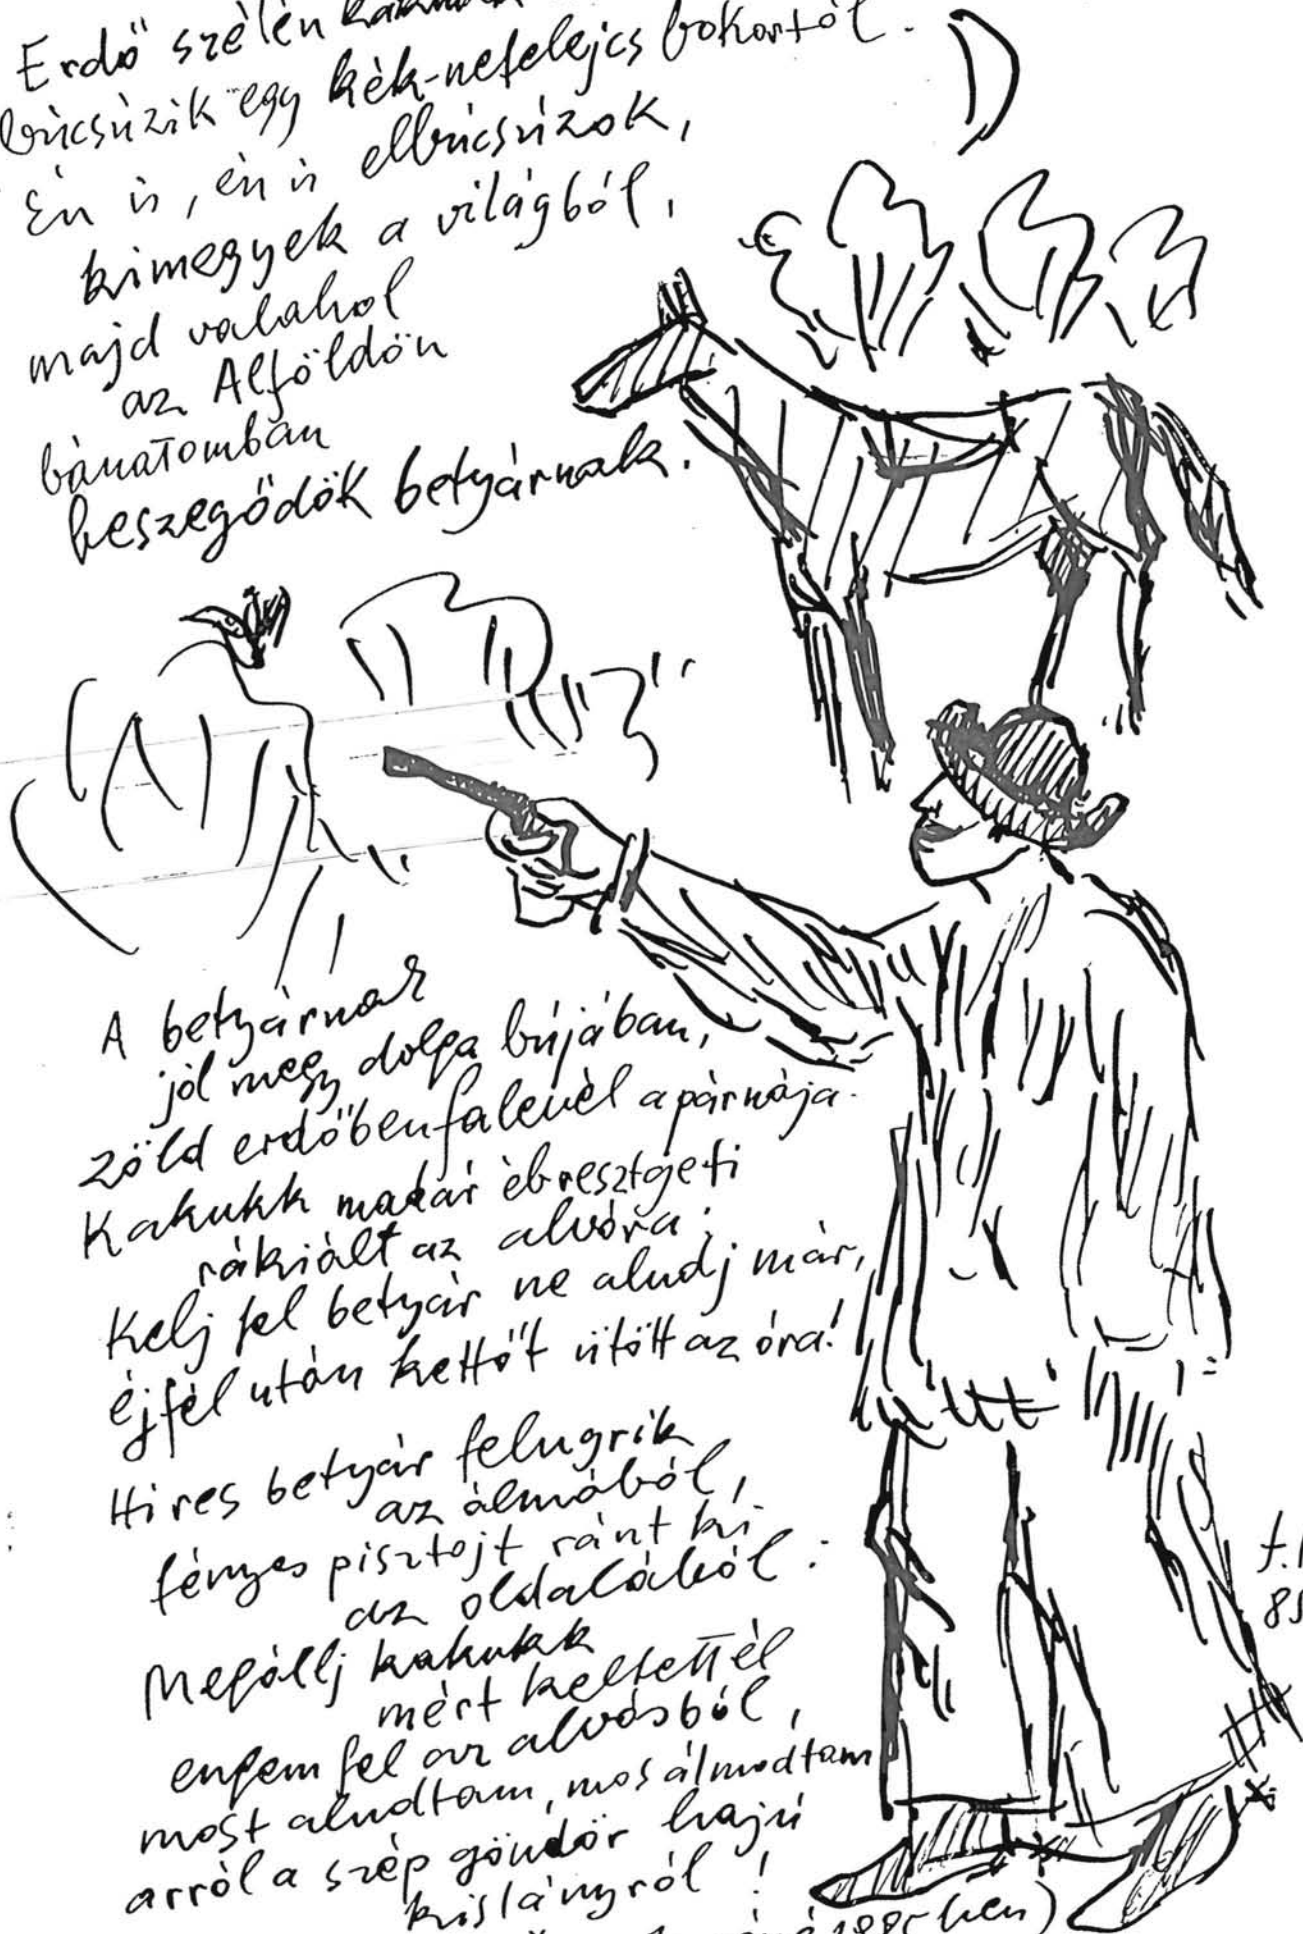 Erdő szélén
búcsúzik egy kék-nefelejcs bokortól.
Én is, én is elbúcsúzok,
kimegyek a világból,
majd valahol
az Alföldön
bánatomban
beszegődök betyárnak.
A betyárnak
jól megy dolga bújában,
zöld erdőben falevél a párnája.
Kakukk madár ébresztgeti
rákiált az alvóra:
Kelj fel betyár ne aludj már,
éjfél után kettőt ütött az óra!
Hires betyár felugrik
az álmából,
fényes pisztojt ránt ki
az oldalából:
Megállj kakukk
mért keltettél
engem fel az alvásból,
most aludtam, mos álmodtam
arról a szép göndör hajú
kislányról!